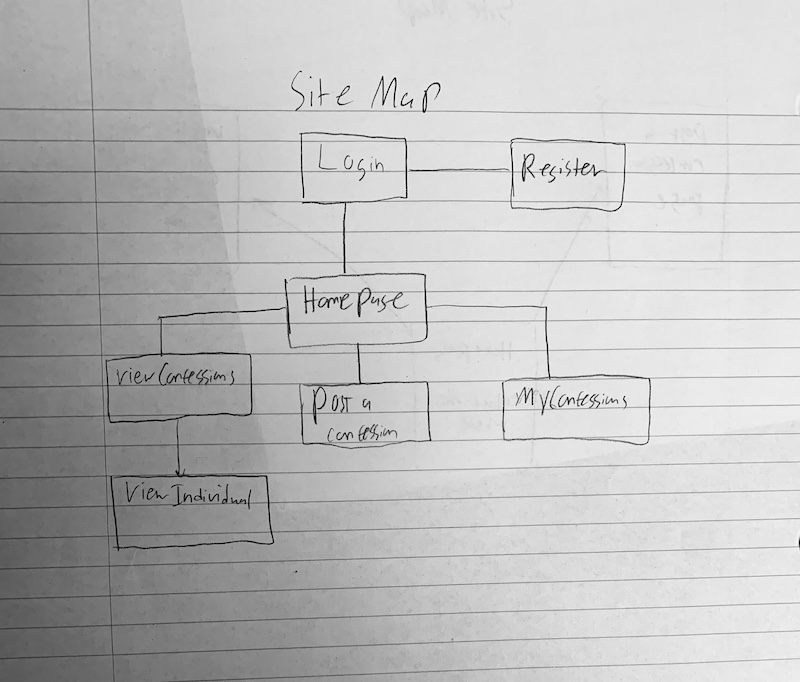 Site Map
Login
Register
Home Page
View Confessions
Post a
confession
My Confessions
View Individual